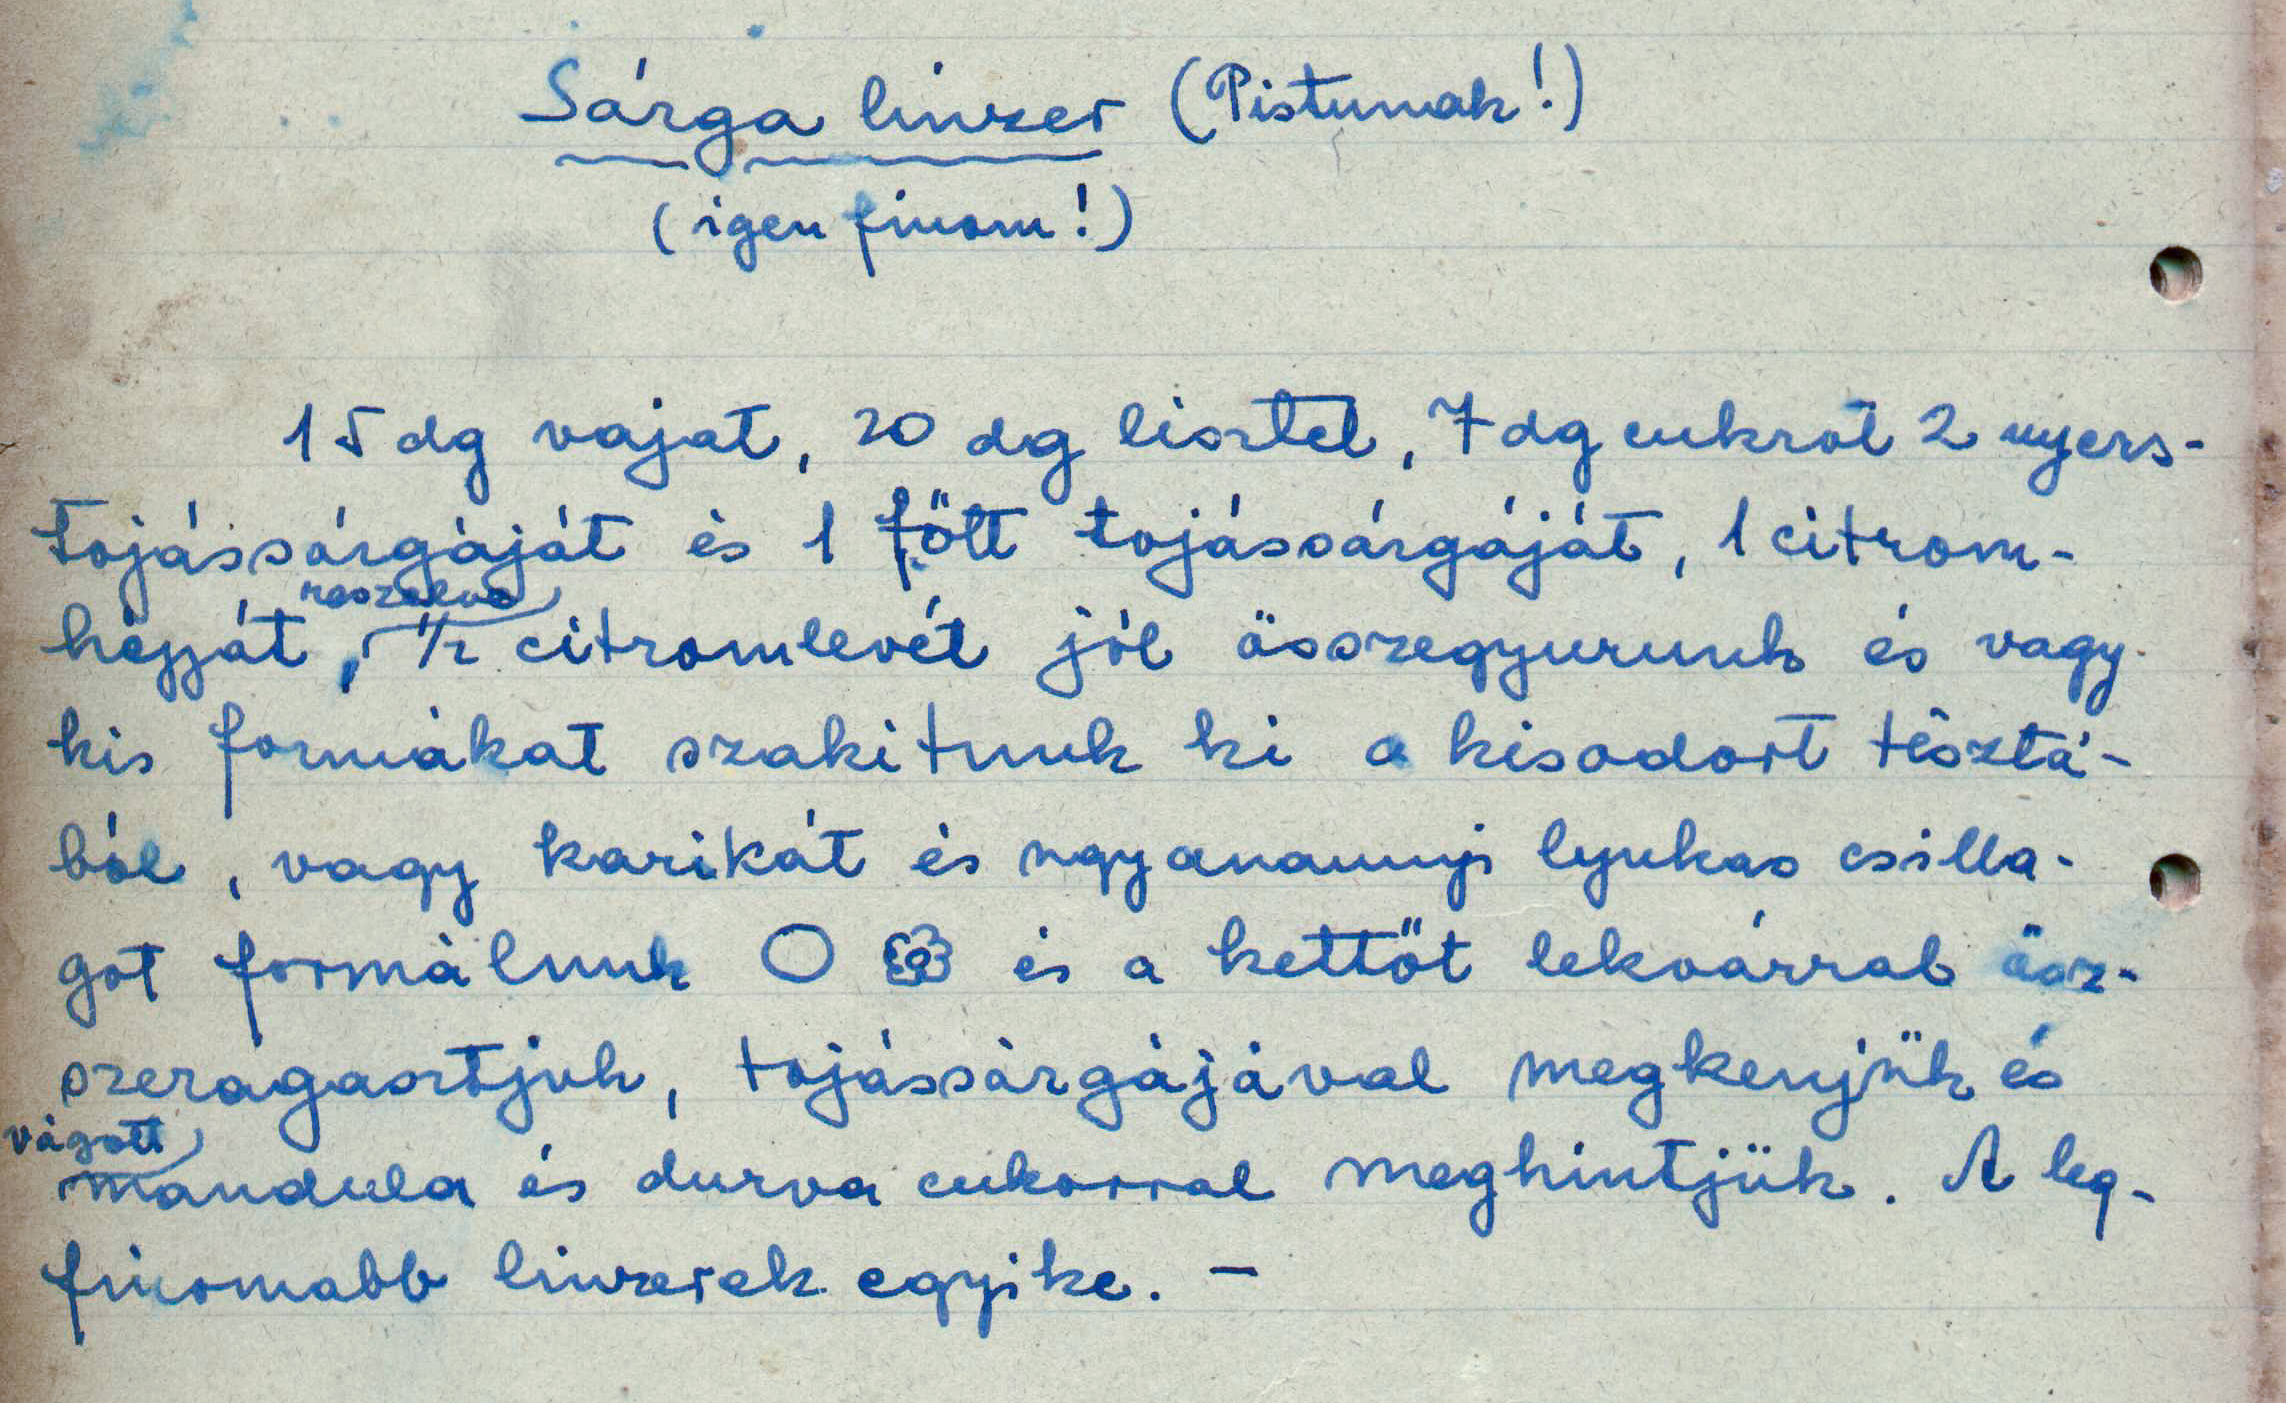 Sárga linzer (Pistunak!)
(igen finom!)
15 dg vajat, 20 dg lisztel, 7 dg cukrot 2 nyers-
tojássárgáját és 1 főtt tojássárgáját, 1 citrom-
reszelve
héjját, 1/2 citromlevét jól összegyurunk és vagy
kis formákat szakitunk ki a kisodort tésztá-
ból, vagy karikát és ugyanannyi lyukas csilla-
got formálunk és a kettőt lekvárral ösz-
szeragasztjuk, tojássárgájával megkenjük és
vágott
mandula és durva cukorral meghintjük. A leg-
finomabb linzerek egyike. -